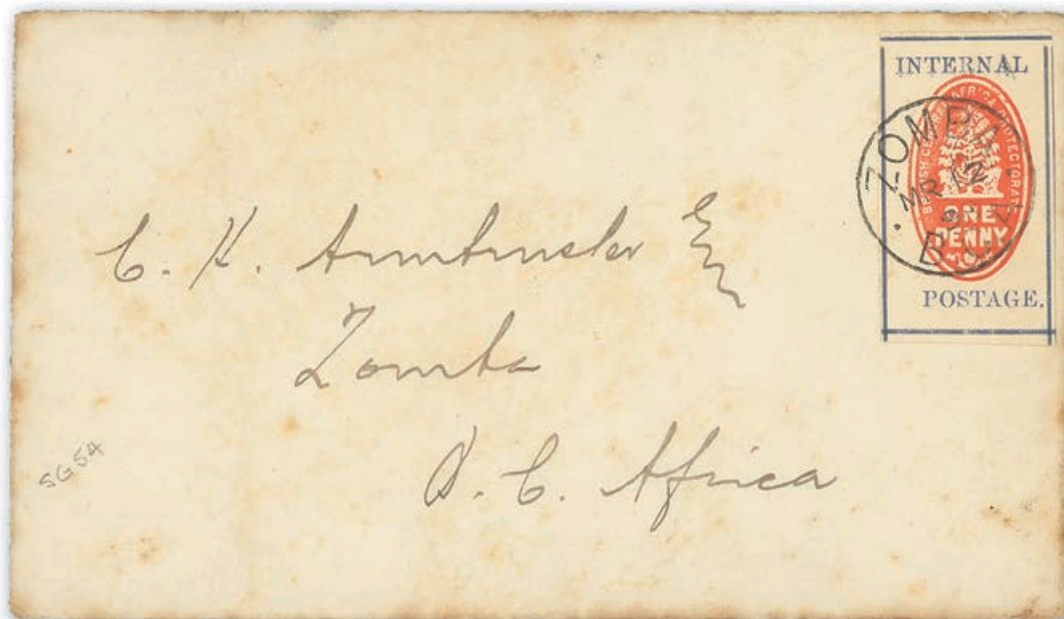 INTERNAL
BRITISH CENTRAL AFRICA PROTECTORATE
ONE
PENNY
POSTAGE.
ZOMBA
MR 12
B.C.A.
C. H. Armbruster Esq
Zomba
B. C. Africa
SG 54